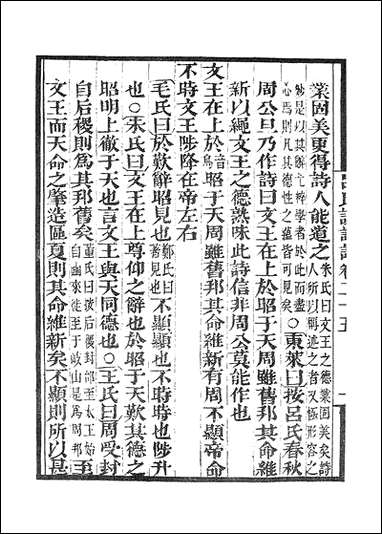 業固美更得詩人能道之朱氏曰文王之德業固美矣詩人所以稱述之者又極形容之
妙是以其辭工粹學者於此而盡心焉則凡其德性之蘊皆可見矣○東萊曰按呂氏春秋
周公旦乃作詩曰文王在上於昭于天周雖舊邦其命維
新以繩文王之德熟味此詩信非周公莫能作也
文王在上於音烏昭于天周雖舊邦其命維新有周不顯帝命
不時文王陟降在帝左右
毛氏曰於歎辭昭見也鄭氏曰著見也不顯顯也不時時也陟升
也○朱氏曰文王在上尊仰之辭也於昭于天歎其德之
昭明上徹于天也言文王與天同德也○王氏曰周受封
自后稷則為其邦舊矣董氏曰按后稷封邰至太王始自豳來徙至于岐山是為周邦至
文王而天命之肇造區夏則其命維新矣不顯則所以甚
呂氏家塾讀詩記卷二十五
一